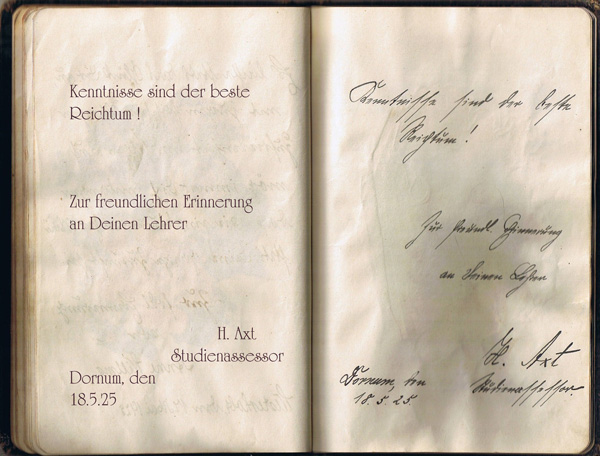 Kenntnisse sind der beste
Reichtum !
Zur freundlichen Erinnerung
an Deinen Lehrer
H. Axt
Studienassessor
Dornum, den
18.5.25
Kenntnisse sind der beste
Reichtum !
Zur freundl. Erinnerung
an Deinen Lehrer
H. Axt
Studienassessor.
Dornum, den
18.5.25